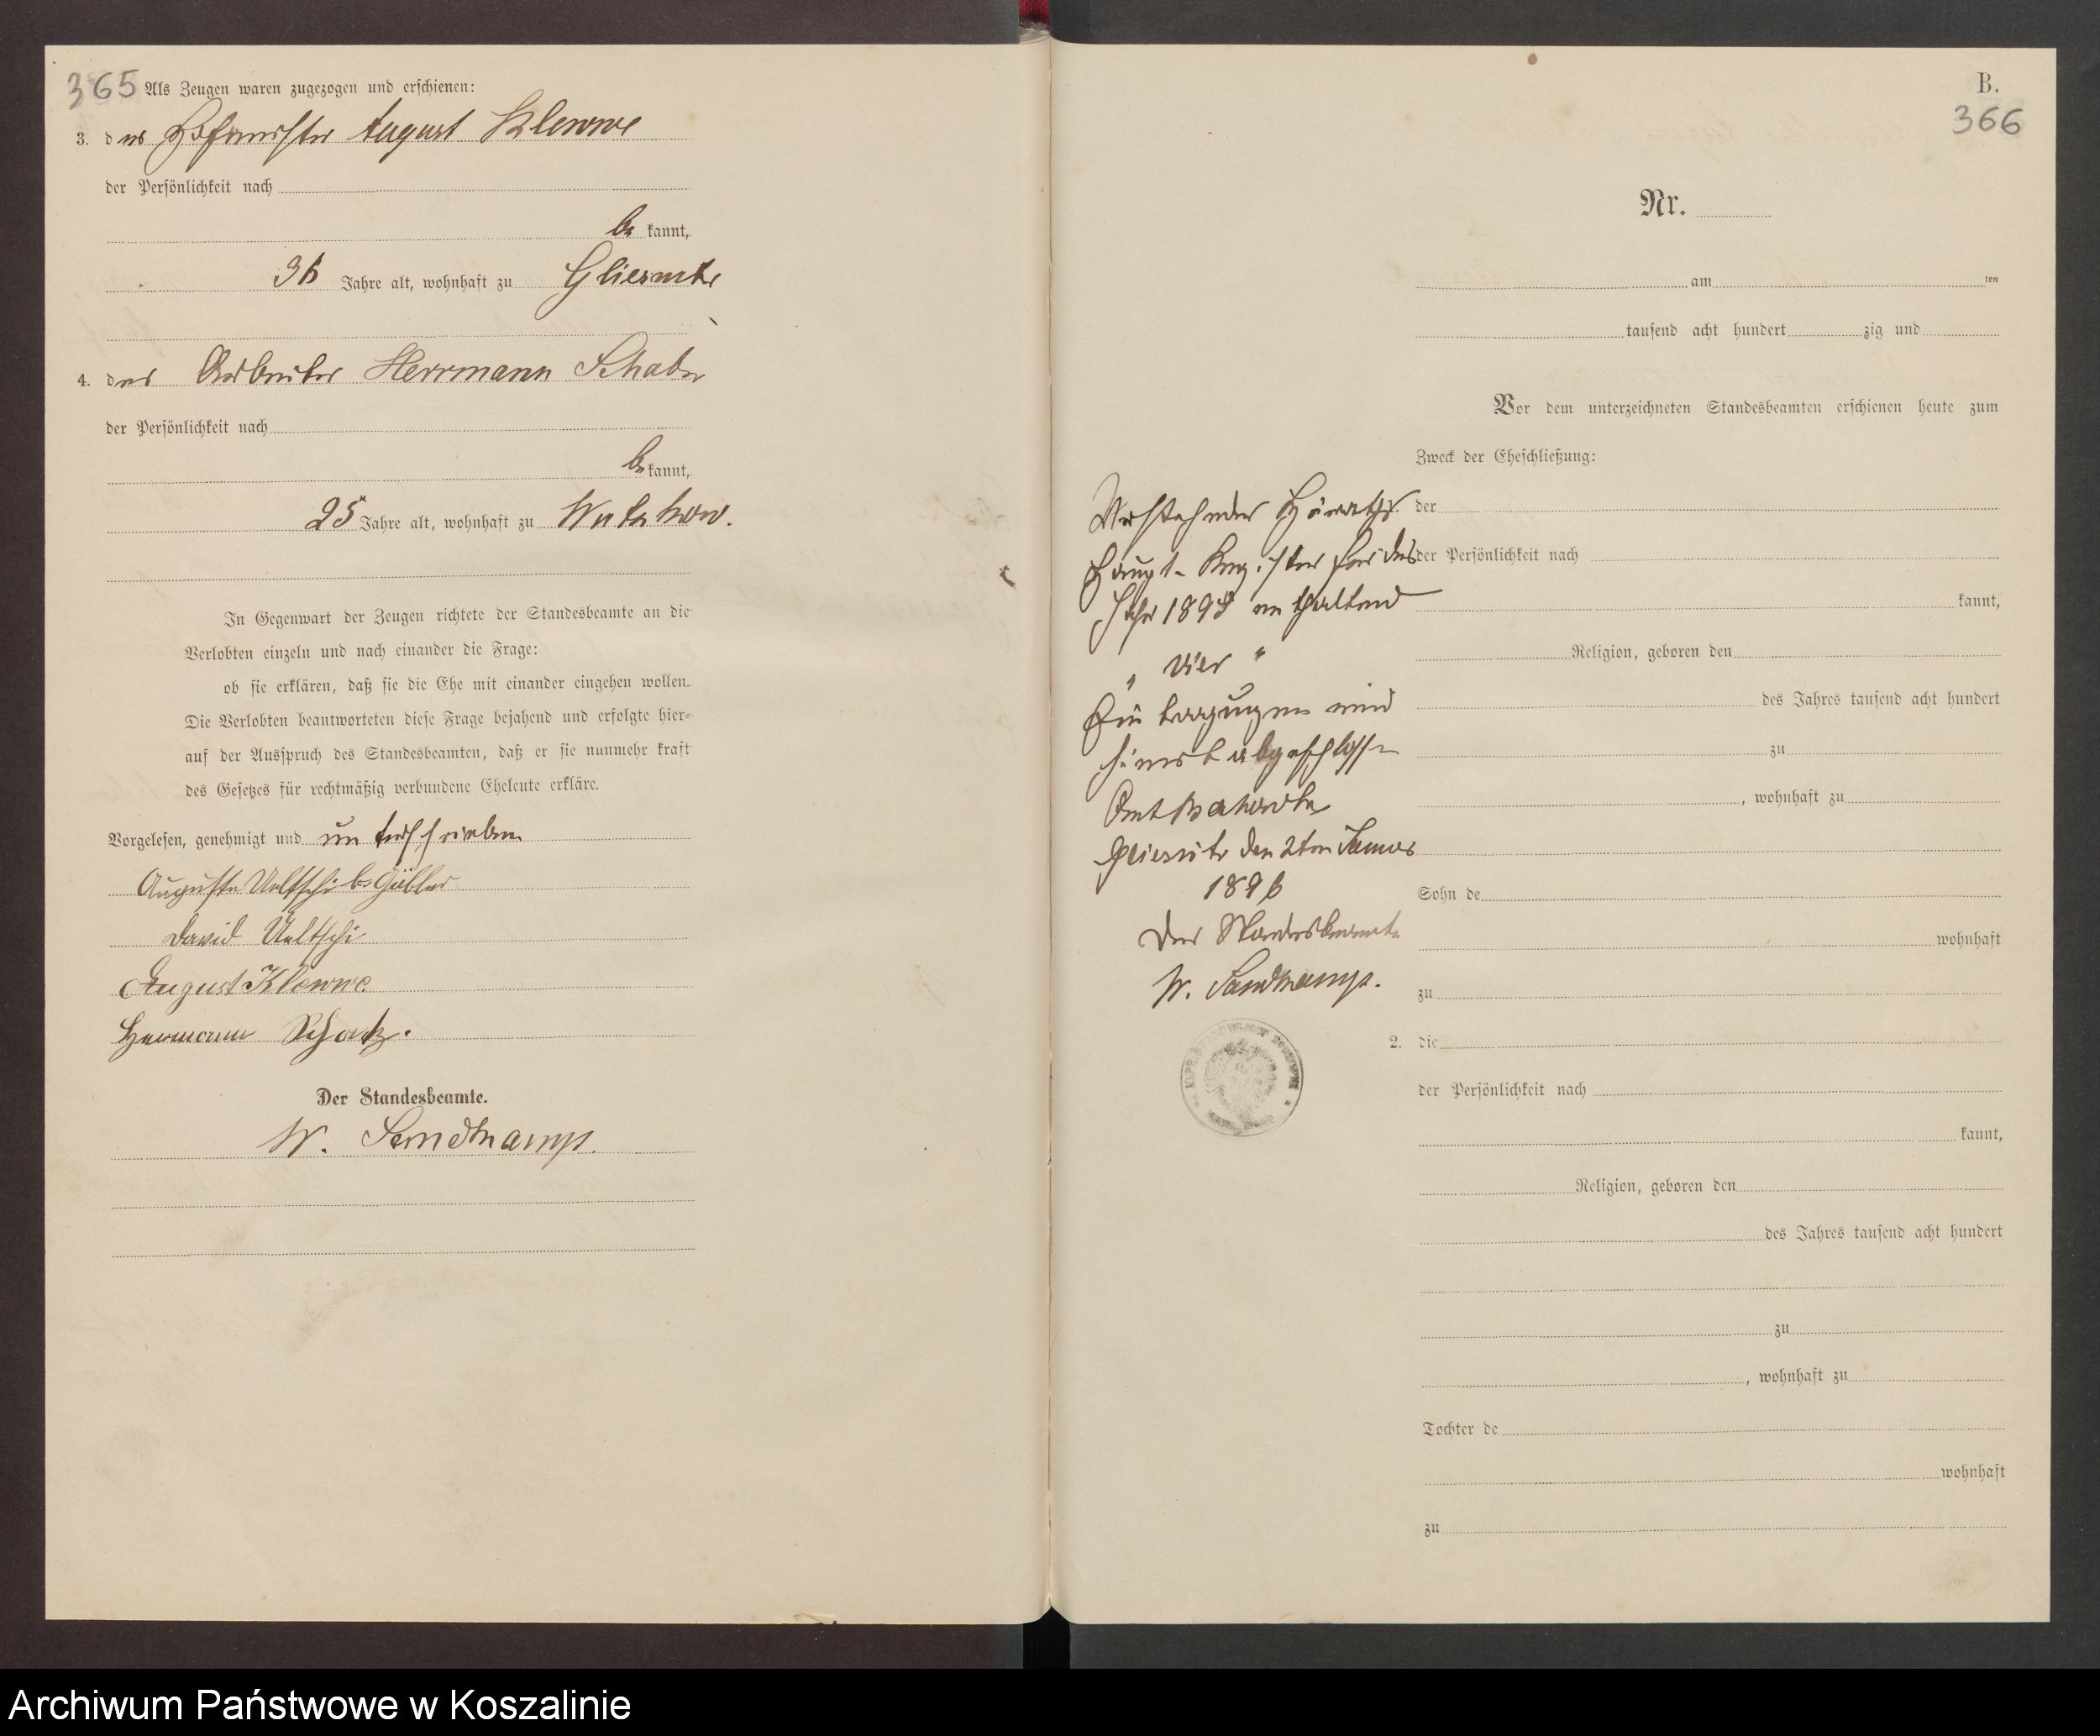 365 Als Zeugen waren zugezogen und erschienen:
3. der August Klewwe
der Persönlichkeit nach
be kannt,
36 Jahre alt, wohnhaft zu
4. der Arbeiter Herrmann
der Persönlichkeit nach
be kannt,
25 Jahre alt, wohnhaft zu
In Gegenwart der Zeugen richtete der Standesbeamte an die
Verlobten einzeln und nach einander die Frage:
ob sie erklären, daß sie die Ehe mit einander eingehen wollen.
Die Verlobten beantworteten diese Frage bejahend und erfolgte hier-
auf der Ausspruch des Standesbeamten, daß er sie nunmehr kraft
des Gesetzes für rechtmäßig verbundene Eheleute erkläre.
Vorgelesen, genehmigt und unterschrieben
Auguste Ueltschi
David Ueltschi
August Klewwe
Hermann
Der Standesbeamte.
W. Sandkamp.
B.
366
Nr.
am ten
tausend acht hundert zig und
Vor dem unterzeichneten Standesbeamten erschienen heute zum
Zweck der Eheschließung:
der
der Persönlichkeit nach
kannt,
Religion, geboren den
des Jahres tausend acht hundert
zu
, wohnhaft zu
Sohn de
wohnhaft
zu
2. die
der Persönlichkeit nach
kannt,
Religion, geboren den
des Jahres tausend acht hundert
zu
, wohnhaft zu
Tochter de
wohnhaft
zu
Vorstehendes Heiraths
Haupt-Register für das
Jahr enthaltend
" vier "
Eintragungen wird
hiermit abgeschlossen
den 2ten
1896
Der Standesbeamte
W. Sandkamp.
Archiwum Państwowe w Koszalinie